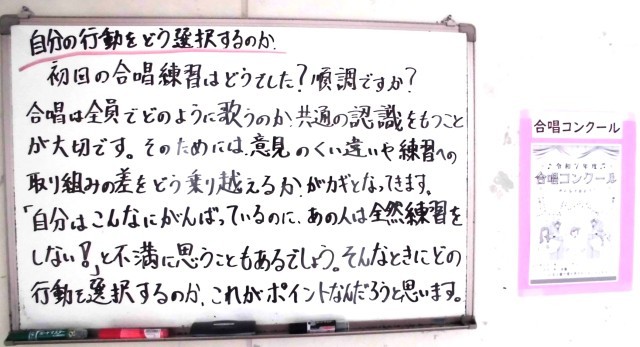 自分の行動をどう選択するのか.
初回の合唱練習はどうでした?順調ですか?
合唱は全員でどのように歌うのか.共通の認識をもつこと
が大切です。そのためには、意見のくい違いや練習への
取り組みの差をどう乗り越えるか.がカギとなってきます。
「自分はこんなにがんばっているのに、あの人は全然練習を
しない!」と不満に思うこともあるでしょう。そんなときにどの
行動を選択するのか、これがポイントなんだろうと思います。
合唱コンクール
合唱コンクール